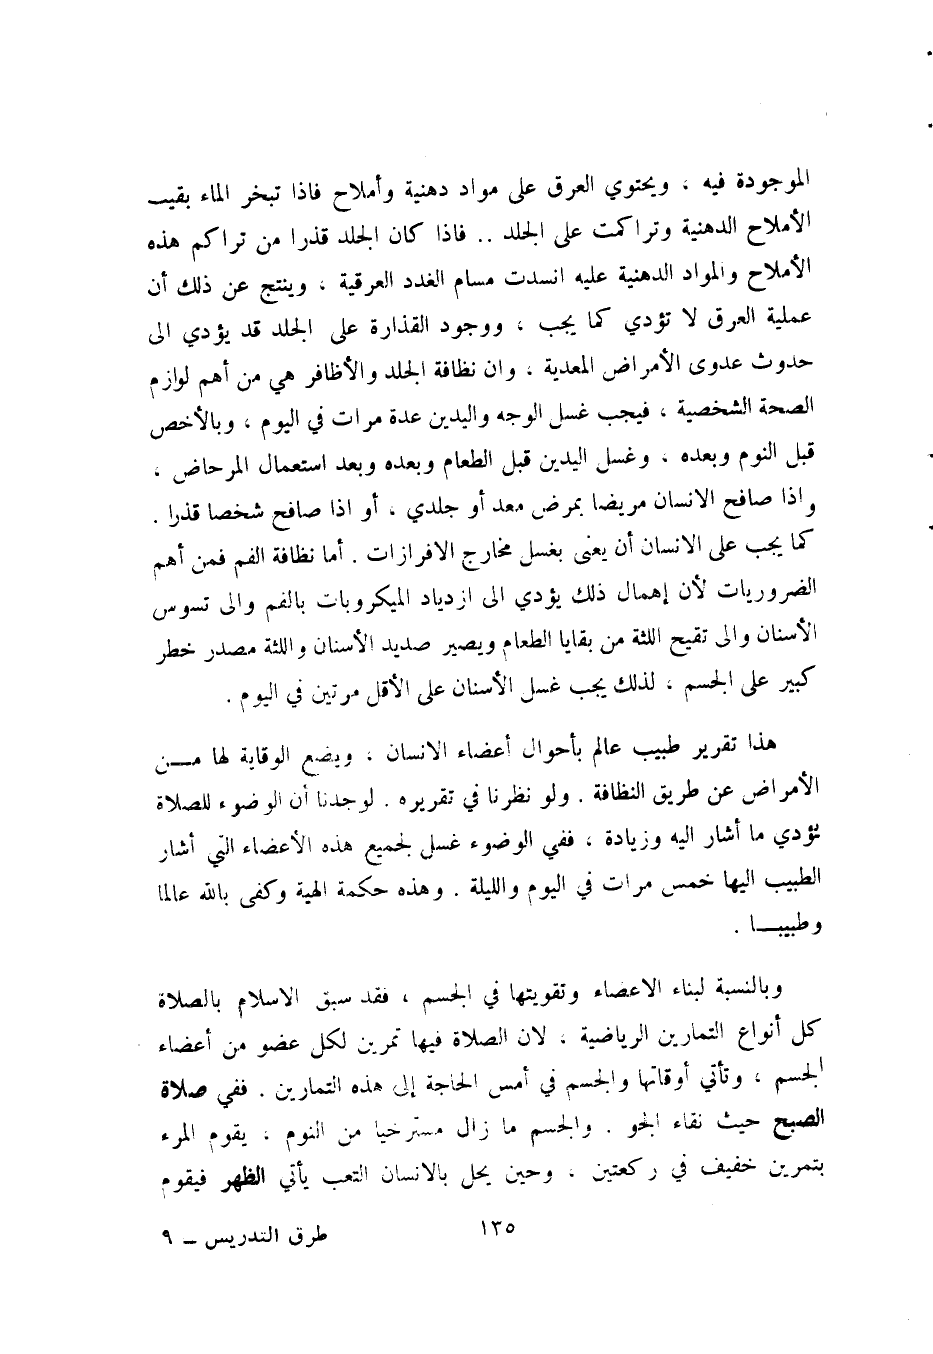 الموجودة فيه ، ويحتوي العرق على مواد دهنية وأملاح فاذا تبخر الماء بقيت
الأملاح الدهنية وتراكمت على الجلد .. فاذا كان الجلد قذرا من تراكم هذه
الأملاح والمواد الدهنية عليه انسدت مسام الغدد العرقية ، وينتج عن ذلك أن
عملية العرق لا تؤدي كما يجب ، ووجود القذارة على الجلد قد يؤدي الى
حدوث عدوى الأمراض المعدية ، وان نظافة الجلد والأظافر هي من أهم لوازم
الصحة الشخصية ، فيجب غسل الوجه واليدين عدة مرات في اليوم ، وبالأخص
قبل النوم وبعده ، وغسل اليدين قبل الطعام وبعده وبعد استعمال المرحاض ،
واذا صافح الانسان مريضا بمرض معد أو جلدي ، أو اذا صافح شخصا قذرا .
كما يجب على الانسان أن يعنى بغسل مخارج الافرازات . أما نظافة الفم فمن أهم
الضروريات لأن إهمال ذلك يؤدي الى ازدياد الميكروبات بالفم والى تسوس
الأسنان والى تقيح اللثة من بقايا الطعام ويصير صديد الأسنان واللثة مصدر خطر
كبير على الجسم ، لذلك يجب غسل الأسنان على الأقل مرتين في اليوم .
هذا تقرير طبيب عالم بأحوال أعضاء الانسان ، ويضع الوقاية لها مــن
الأمراض عن طريق النظافة . ولو نظرنا في تقريره . لوجدنا أن الوضوء للصلاة
تؤدي ما أشار اليه وزيادة ، ففي الوضوء غسل لجميع هذه الأعضاء التي أشار
الطبيب اليها خمس مرات في اليوم والليلة . وهذه حكمة الهية وكفى بالله عالما
وطبيبــا .
وبالنسبة لبناء الاعضاء وتقويتها في الجسم ، فقد سبق الاسلام بالصلاة
كل أنواع التمارين الرياضية ، لان الصلاة فيها تمرين لكل عضو من أعضاء
الجسم ، وتأتي أوقاتها والجسم في أمس الحاجة إلى هذه التمارين . ففي صلاة
الصبح حيث نقاء الجو . والجسم ما زال مسترخيا من النوم ، يقوم المرء
بتمرين خفيف في ركعتين ، وحين يحل بالانسان التعب يأتي الظهر فيقوم
١٣٥
طرق التدريس – ٩